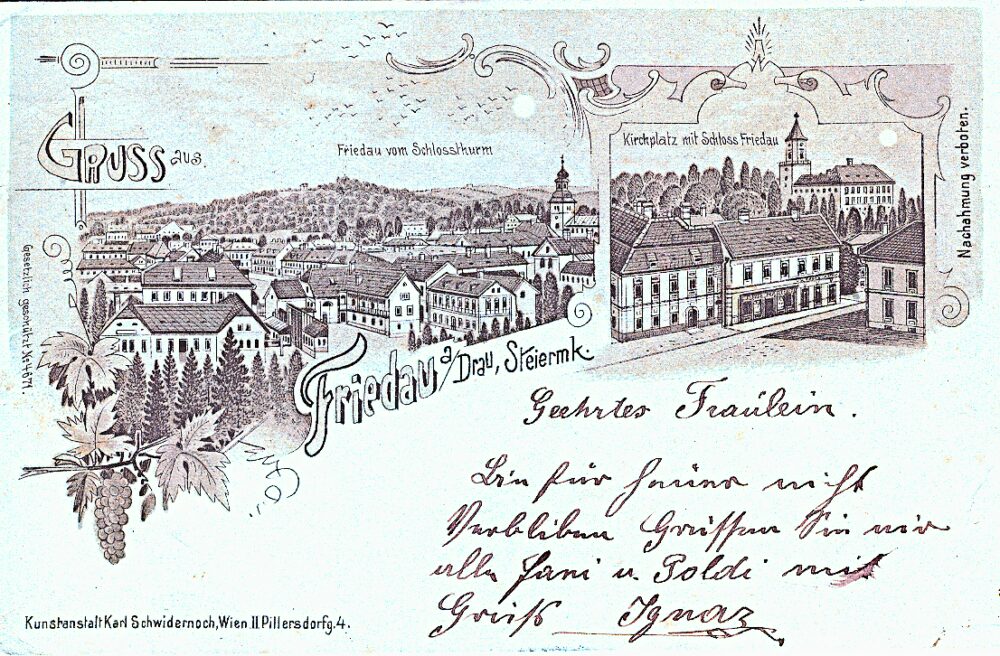 Gruss aus
Friedau vom Schlossthurm
Kirchplatz mit Schloss Friedau
Nachahmung verboten.
Gesetzlich geschützt № 4671.
Friedau a/Drau, Steiermk.
Geehrtes Fraülein.
Bin für heuer nicht
Verbliben Grüssen Sie mir
alle Fani u. Poldi mit
Gruß Ignaz
Kunstanstalt Karl Schwidernoch, Wien II Pillersdorfg. 4.